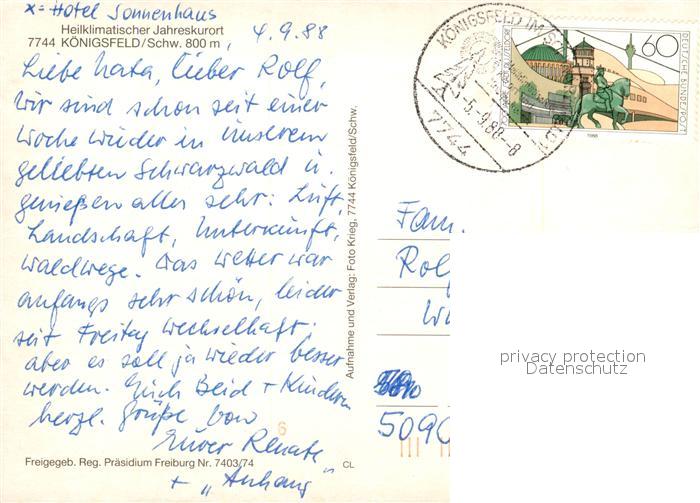 x = Hotel Sonnenhaus
Heilklimatischer Jahreskurort
7744 KÖNIGSFELD/Schw. 800 m
4.9.88
Liebe Nata, lieber Rolf,
wir sind schon seit einer
Woche wieder in unserem
geliebten Schwarzwald u.
genießen alles sehr: Luft,
Landschaft, Unterkunft,
Waldwege. Das Wetter war
anfangs sehr schön, leider
seit Freitag wechselhaft;
aber es soll ja wieder besser
werden. Euch Beid + Kindern
herzl. Grüße von
Eurer Renate
+ „Anhang"
6
Freigegeb. Reg. Präsidium Freiburg Nr. 7403/74
CL
Aufnahme und Verlag: Foto Krieg, 7744 Königsfeld/Schw.
KÖNIGSFELD IM
-5.9.88-8
7744
60
DEUTSCHE BUNDESPOST
1988
Fam.
Rolf
5090
privacy protection
Datenschutz